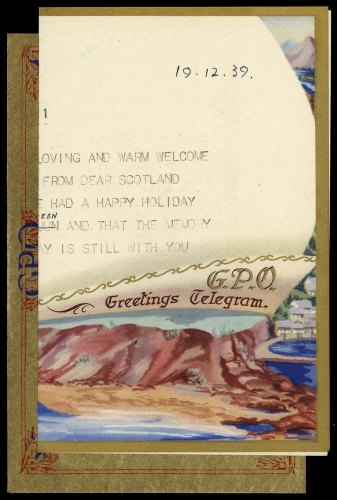 19.12.39.
1
LOVING AND WARM WELCOME
FROM DEAR SCOTLAND
HAD A HAPPY HOLIDAY
EEN
AND THAT THE MEMORY
AY IS STILL WITH YOU
G.P.O.
Greetings Telegram.